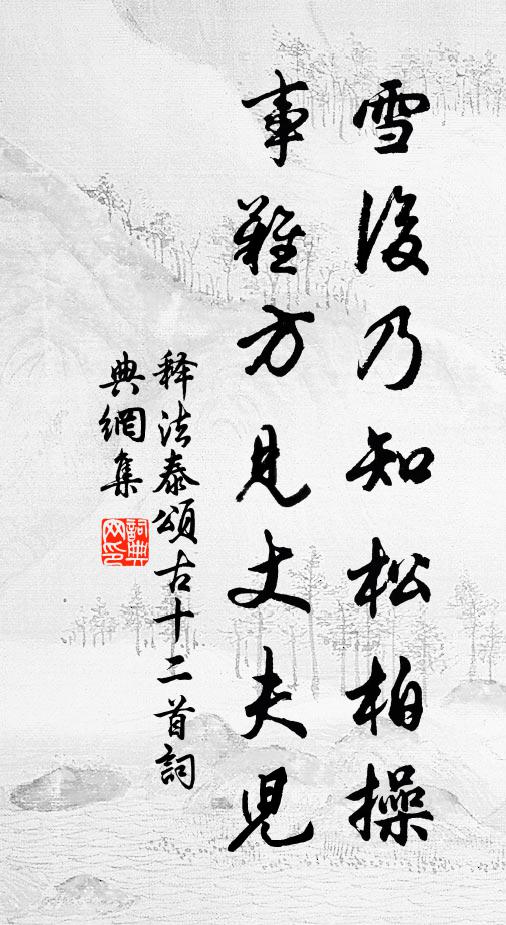 雪後乃知松柏操
事難方見丈夫兒
释法泰頌古十二首詞
典網集
詞典网印